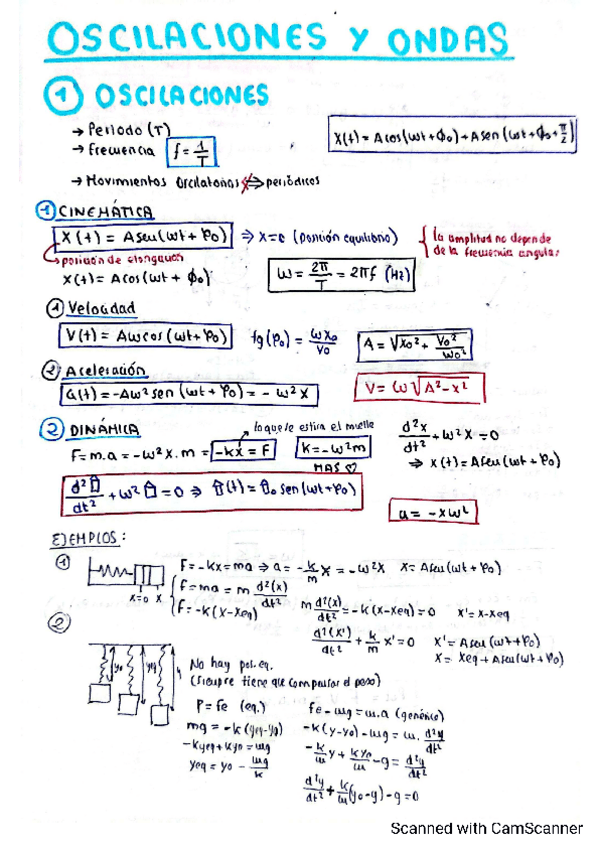 OSCILACIONES Y ONDAS
1 OSCILACIONES
→ Periodo (T)
→ Frecuencia f = 1/T
X(t) = A cos(ωt + ϕ₀) = A sen(ωt + ϕ₀ + π/2)
→ Movimientos oscilatorios ⇏ periódicos
1 CINEMÁTICA
X(t) = A sen(ωt + φ₀) ⇒ X=0 (posición equilibrio)
la amplitud no depende de la frecuencia angular
posición de elongación
X(t) = A cos(ωt + ϕ₀)
ω = 2π/T = 2πf (Hz)
1 Velocidad
V(t) = Aω cos(ωt + φ₀) tg(φ₀) = ωx₀/v₀ A = √x₀² + v₀²/ω₀²
2 Aceleración
a(t) = -Aω² sen(ωt + φ₀) = -ω²X V = ω√A² - x²
2 DINÁMICA
lo que se estira el muelle
F = m.a = -ω²x.m = -kx = F k = -ω²m d²x/dt² + ω²x = 0
MAS ♡ ⇒ x(t) = A sen(ωt + φ₀)
d²□/dt² + ω²□ = 0 ⇒ □(t) = □₀ sen(ωt + φ₀)
a = -xω²
EJEMPLOS:
1
F = -kx = ma ⇒ a = -k/m x = -ω²x x = A sen(ωt + φ₀)
F = ma = m d²(x)/dt²
x=0 x
F = -k(x - xeq) m d²(x)/dt² = -k(x - xeq) = 0 x' = x - xeq
2
d²(x')/dt² + k/m x' = 0 x' = A sen(ωt + φ₀)
x = xeq + A sen(ωt + φ₀)
y₀ yeq y
No hay pos. eq.
(siempre tiene que compensar el peso)
P = Fe (eq.) fe - mg = m.a (genérico)
mg = -k(yeq - y₀) -k(y - y₀) - mg = m. d²y/dt²
-kyeq + ky₀ = mg -k/m y + ky₀/m - g = d²y/dt²
yeq = y₀ - mg/k
d²y/dt² + k/m(y₀ - y) - g = 0
Scanned with CamScanner